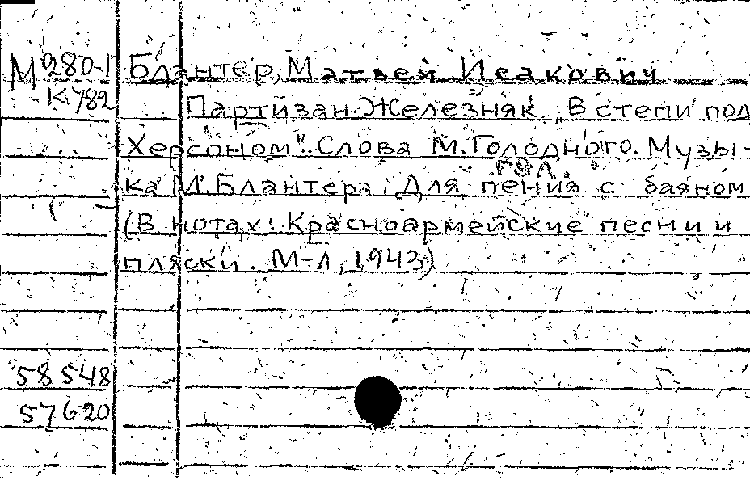 М 280-1 Блантер, Матвей Исакович
К 782 Партизан Железняк "В степи под
Херсоном". Слова М. Голодного. Музы-
ка М. Блантера. Для пения с баяном
(В нотах: Красноармейские песни и
пляски. М-Л, 1943)
58548
57620